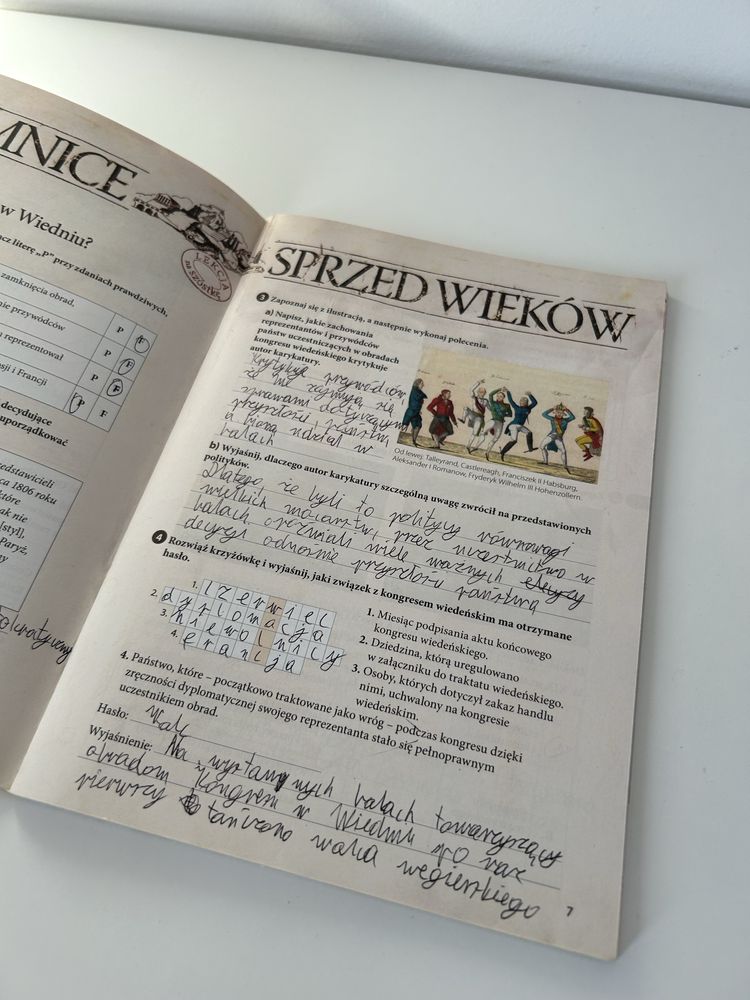 MNICE
w Wiedniu?
cz literę „P" przy zdaniach prawdziwych,
zamknięcia obrad.
P F
nie przywódców
P F
reprezentował
P F
sji i Francji
P F
decydujące
uporządkować
edstawicieli
ca 1806 roku
które
ak nie
[styl],
Paryż,
LEKCJA
na SZÓSTKĘ
SPRZED WIEKÓW
3 Zapoznaj się z ilustracją, a następnie wykonaj polecenia.
a) Napisz, jakie zachowania
reprezentantów i przywódców
państw uczestniczących w obradach
kongresu wiedeńskiego krytykuje
autor karykatury.
Krytykuje przywódców,
że nie zajmują się
sprawami dotyczącymi
przyszłości państw,
a biorą udział w
balach
Od lewej: Talleyrand, Castlereagh, Franciszek II Habsburg,
Aleksander I Romanow, Fryderyk Wilhelm III Hohenzollern.
b) Wyjaśnij, dlaczego autor karykatury szczególną uwagę zwrócił na przedstawionych
polityków.
Dlatego, że byli to politycy równowagi
wielkich mocarstw, przez uczestnictwo w
balach omawiali wiele ważnych
decyzji odnośnie przyszłości państwa
4 Rozwiąż krzyżówkę i wyjaśnij, jaki związek z kongresem wiedeńskim ma otrzymane
hasło.
1. czerwiec
2. dyplomacja
3. niewolnicy
4. francja
1. Miesiąc podpisania aktu końcowego
kongresu wiedeńskiego.
2. Dziedzina, którą uregulowano
w załączniku do traktatu wiedeńskiego.
3. Osoby, których dotyczył zakaz handlu
nimi, uchwalony na kongresie
wiedeńskim.
4. Państwo, które – początkowo traktowane jako wróg – podczas kongresu dzięki
zręczności dyplomatycznej swojego reprezentanta stało się pełnoprawnym
uczestnikiem obrad.
Hasło: Walc
Wyjaśnienie: Na wystawnych balach towarzyszący
obradom kongresu w Wiedniu po raz
pierwszy tańczono walca węgierskiego
7